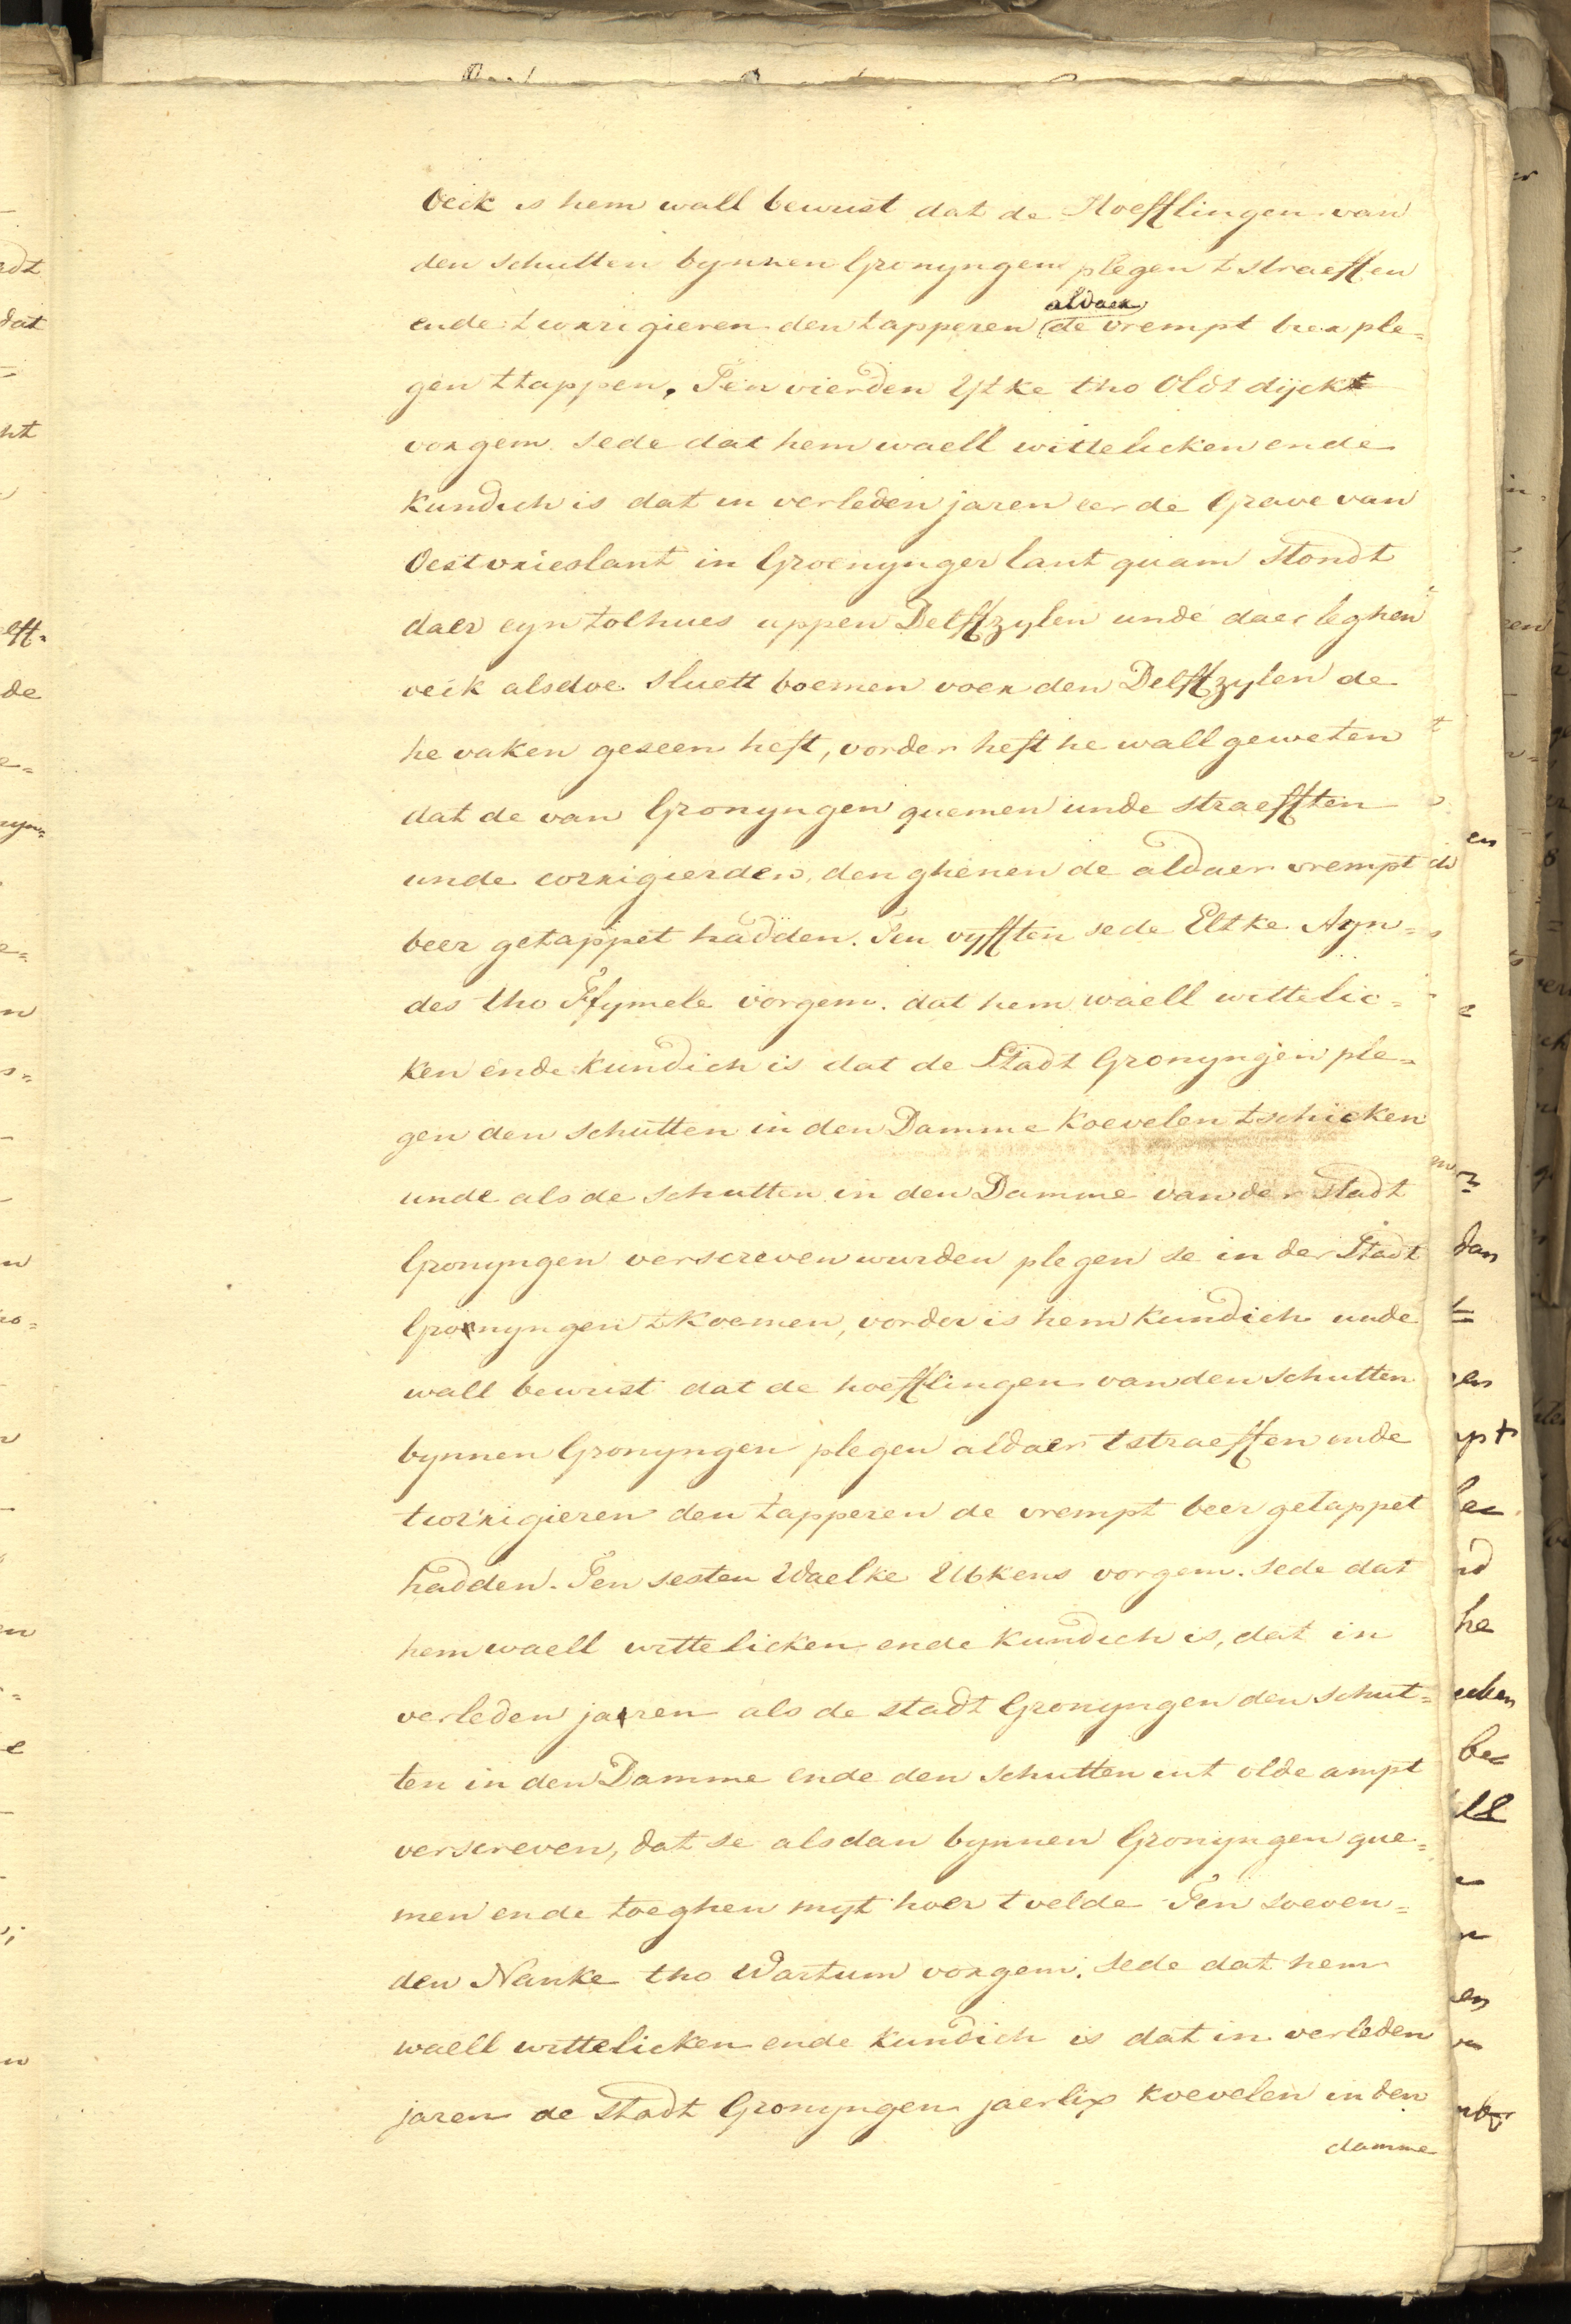 Oeck is hem wall bewust dat de Hoefflingen van
den schutten bynnen Gronyngen plegen t straeffen
aldaer
ende t corrigieren den tapperen de vrempt bier ple=
gen ttappen. Ten vierden Ytke tho Oldt dijck
vorgem. sede dat hem waell wittelicken ende
kundich is dat in verleden jaren eer de Grave van
Oestvrieslant in Groenynger lant quam stondt
daer eyn tolhues uppen Delffzylen unde daer leghen
oeik alsdoe sluett boemen voer den Delffzylen de
he vaken geseen heft, vorder heft he wall geweten
dat de van Gronyngen quemen unde straefften
unde corrigierden, den ghenen de aldaer vrempt
beer getappet hadden. Ten vyfften sede Eltke Ayn=
des tho Ffymele vorgem. dat hem waell wittelic=
ken ende kundich is dat de Stadt Gronyngen ple=
gen den schutten in den Damme koevelen tschicken
unde als de schutten in den Damme van der stadt
Gronyngen verscreven wurden plegen se in der Stadt
Gronyngen t koemen, vorder is hem kundich unde
wall bewust dat de hoefflingen van den schutten
bynnen Gronyngen plegen aldaer t straeffen ende
tcorrigieren den tapperen de vrempt beer getappet
hadden. Ten sesten Waelke Ubkens vorgem. sede dat
hem waell wittelicken ende kundich is, dat in
verleden jaren als de stadt Gronyngen den schut=
ten in den Damme ende den schutten int olde ampt
verscreven, dat se alsdan bynnen Gronyngen que=
men ende toeghen myt hoer t velde Ten soeven=
den Nanke tho Wartum vorgem. sede dat hem
waell wittelicken ende kundich is dat in verleden
jaren de stadt Gronyngen jaerlix koevelen in den
damme